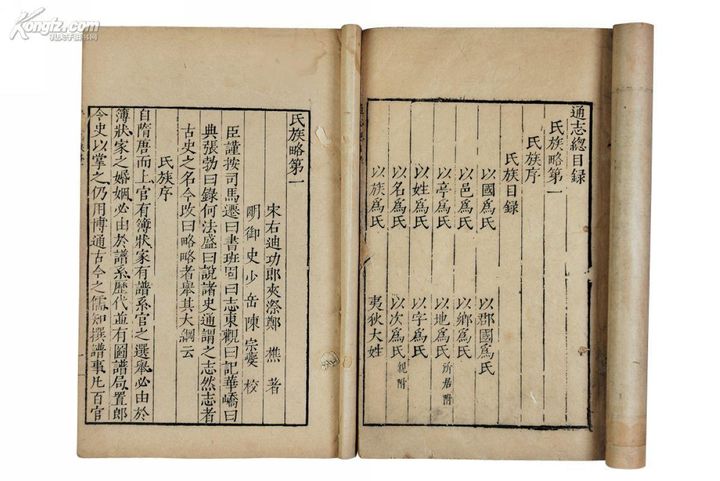 通志總目録
氏族略第一
氏族序
氏族目録
以國爲氏
以郡國爲氏
以邑爲氏
以鄉爲氏
以亭爲氏
以地爲氏 所居附
以姓爲氏
以字爲氏
以名爲氏
以次爲氏 親附
以族爲氏
夷狄大姓
氏族略第一
宋右迪功郎夾漈鄭樵著
明御史少岳陳宗夔校
臣謹按司馬遷曰書班固曰志東觀曰記華嶠曰
典張勃曰録何法盛曰說諸史通謂之志然志者
古史之名今改曰略略者舉其大綱云
氏族序
自隋唐而上官有簿狀家有譜系官之選舉必由於
簿狀家之婚姻必由於譜系歷代並有圖譜局置郎
令史以掌之仍用博通古今之儒知撰譜事凡百官
Kongfz.com